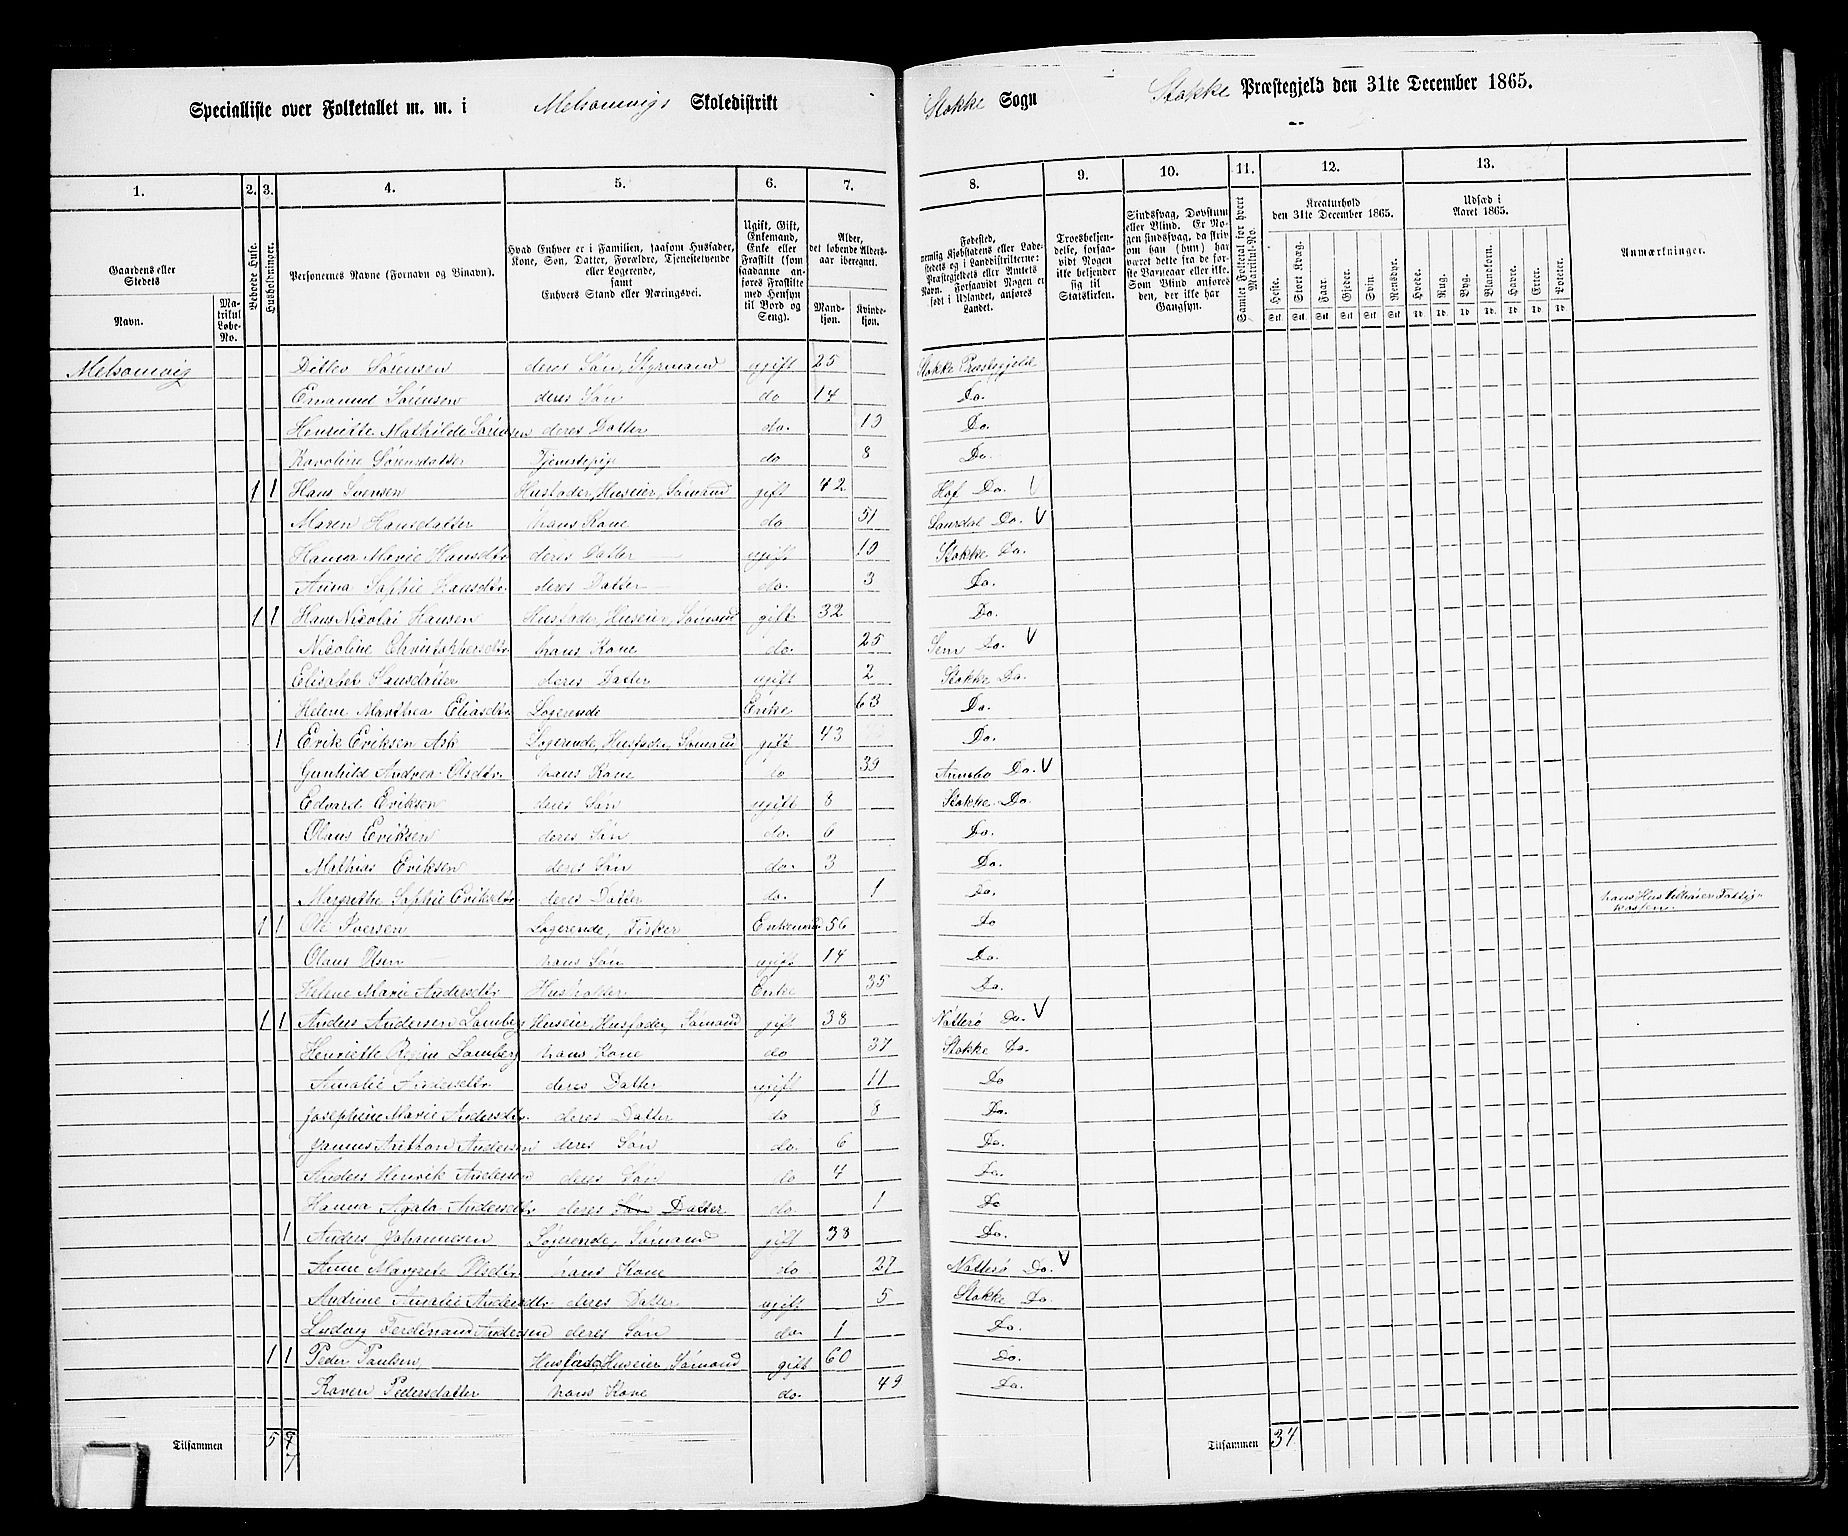 Specialliste over Folketallet m. m. i Melsomvigs Skoledistrikt Stokke Sogn Stokke Præstegjeld den 31te December 1865.
1. 2. 3. 4. 5. 6. 7. 8. 9. 10. 11. 12. 13.
Gaardens eller Stedets Navn. Matrikul Løbe-No. Beboede Huse. Husholdninger. Personernes Navne (Fornavn og Tilnavn). Hvad Enhver er i Familien, saasom Husfader, Kone, Søn, Datter, Forældre, Tjenestetyende eller Logerende, samt Enhvers Stand eller Næringsvei. Ugift, Gift, Enkemand, Enke eller Fraskilt (som saadanne anføres Fraskilte med Hensyn til Bord og Seng). Alder, det løbende Aldersaar iberegnet. Mandkjøn. Kvindekjøn.
Fødested, nemlig Kjøbstadens eller Ladestedets og i Landdistrikterne: Præstegjeldets eller Amtets Navn. Forsaavidt Nogen er født i Udlandet, anføres Landet. Troesbekjendelse, forsaavidt Nogen ikke bekjender sig til Statskirken. Sindssvag, Døvstum eller Blind. Er Nogen sindssvag, da skrives, om han (hun) har været dette fra de første Barneaar eller ikke. Som Blind anføres den, der ikke har Gangsyn. Samlet Folketal for hvert Matrikul-No. Kreaturhold den 31te December 1865. Udsæd i Aaret 1865. Anmærkninger.
Heste. Stort Kvæg. Faar. Gjeder. Svin. Rensdyr. Hvede. Rug. Byg. Blandkorn. Havre. Erter. Poteter.
Melsomvig Ditlev Sørensen deres Søn, Styrmand ugift 25 Stokke Præstegjeld
Emanuel Sørensen deres Søn do 14 Do.
Henriette Mathilde Sørensen deres Datter do. 10 Do.
Karoline Sørensdatter Tjenestepige do 8 Do.
1 1 Hans Iversen Husfader, Huseier, Sømand gift 42 Hof Do. V
Maren Hansdatter hans Kone do 51 Laurdal Do. V
Hanna Marie Hansdtr. deres Datter ugift 10 Stokke Do.
Anna Sophie Hansdtr. deres Datter do. 3 Do.
1 1 Hans Nicolai Hansen Husfader, Huseier, Sømand gift 32 Do.
Nicoline Christophersdtr. hans Kone do. 25 Sem Do. V
Elisabet Hansdatter deres Datter ugift 2 Stokke Do.
Helene Marthea Eliasdtr. Logerende Enke 63 Do.
1 Erik Eriksen Ask Logerende, Husfader, Sømand gift 43 Do.
Gunhild Andrea Olsdtr. hans Kone do 39 Do. V
Edvard Eriksen deres Søn ugift 8 Stokke Do.
Olaus Eriksen deres Søn do. 6 Do.
Mathias Eriksen deres Søn do. 3 Do.
Margrethe Sophie Eriksdtr. deres Datter do. 1 Do.
1 1 Ole Iversen Logerende, Fisker Enkemand 56 Do hans Hus tilhører Fattigkassen.
Olaus Olsen hans Søn ugift 14 Do.
Helene Marie Andersdtr. Husholder Enke 35 Do.
1 1 Anders Andersen Lomberg Huseier, Husfader, Sømand gift 38 Nøtterø Do. V
Henriette Regine Lomberg hans Kone do 37 Stokke Do.
Amalie Andersdtr. deres Datter ugift 11 Do
Josephine Marie Andersdtr. deres Datter do 8 Do.
Janus Anthon Andersen deres Søn do. 6 Do.
Anders Henrik Andersen deres Søn do 4 Do.
Hanna Agata Andersdtr. deres Søn Datter do. 1 Do
1 Anders Johannesen Logerende, Sømand gift 38 Do.
Anne Margrete Olsdtr. hans Kone do 27 Nøtterø Do. V
Andrine Amalie Andersdtr. deres Datter ugift 5 Stokke Do.
Ludvig Ferdinand Andersen deres Søn do 1 Do.
1 1 Peder Paulsen Husfader, Huseier Sømand gift 60 Do.
Karen Pedersdatter hans Kone do. 49 Do.
Tilsammen 5 7 Tilsammen 34